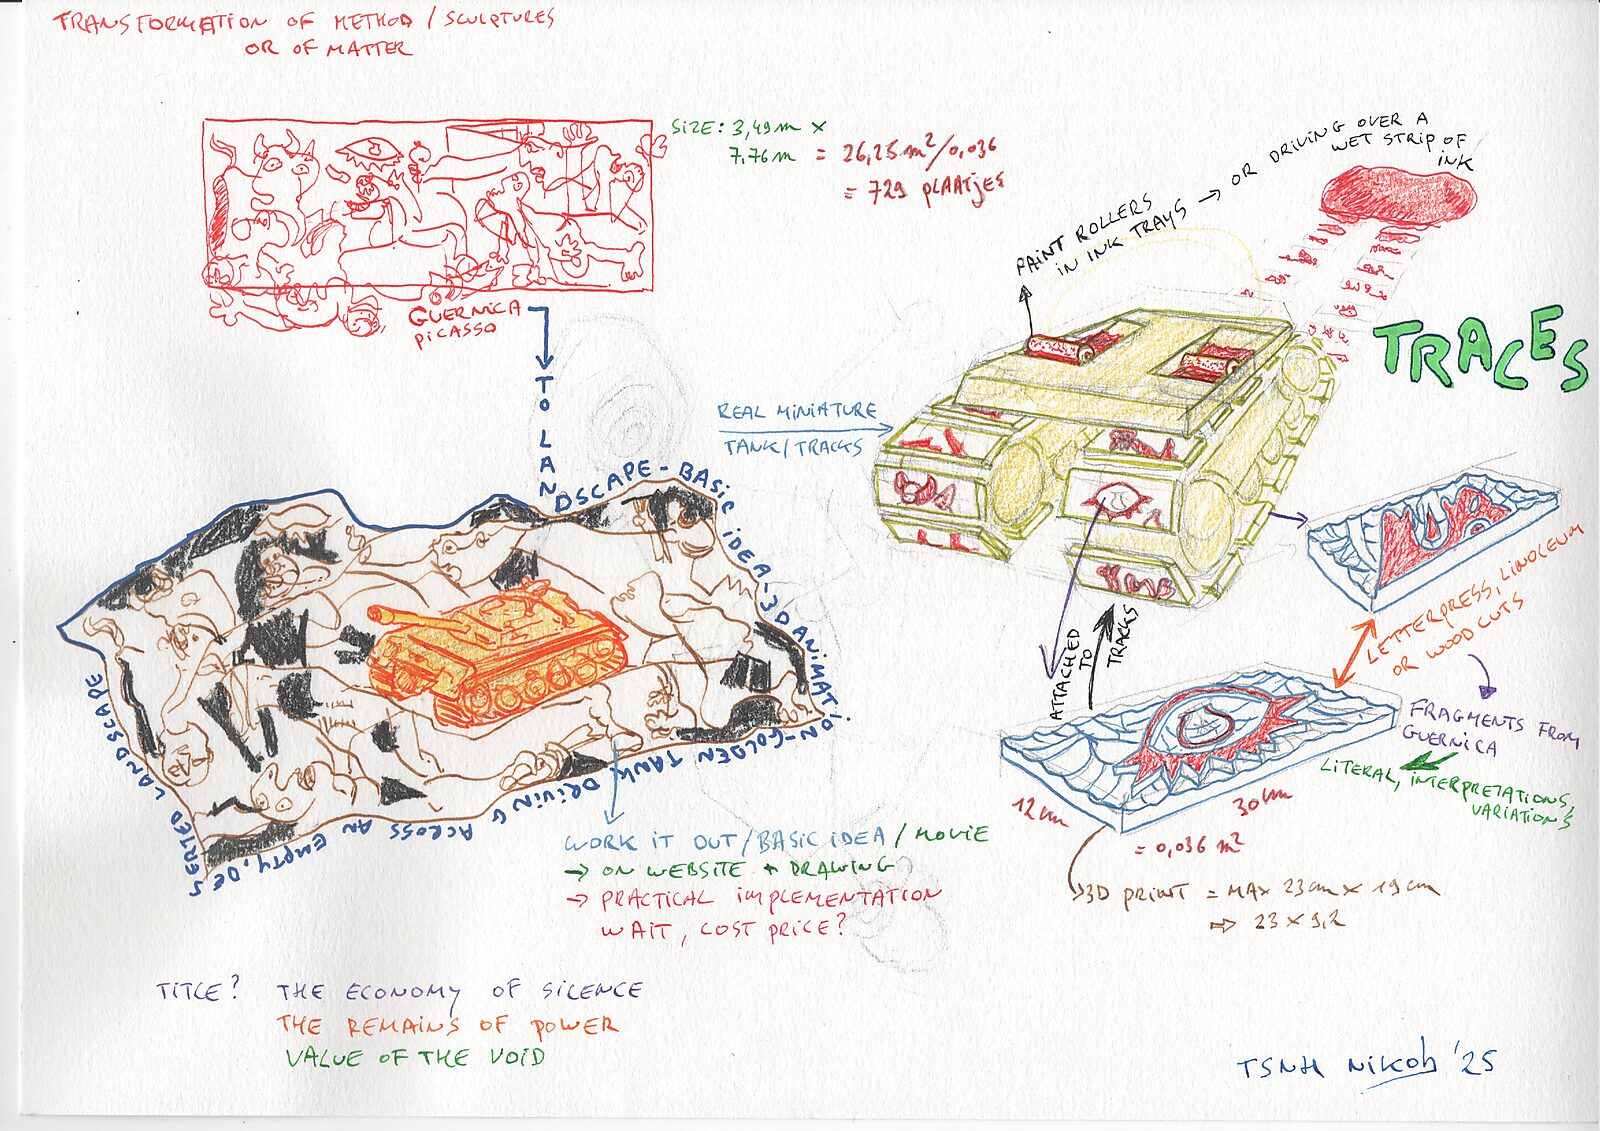 TRANSFORMATION OF METHOD / SCULPTURES
OR OF MATTER
SIZE: 3,49m x
7,76m = 26,25m²/0,036
= 729 PLAATJES
GUERNICA
PICASSO
TO LANDSCAPE - BASIC IDEA - 3D ANIMATION - GOLDEN TANK DRIVING ACROSS AN EMPTY, DESERTED LANDSCAPE
PAINT ROLLERS
IN INK TRAYS → OR DRIVING OVER A
WET STRIP OF
INK
TRACES
REAL MINIATURE
TANK/TRACKS
ATTACHED
TO
TRACKS
LETTERPRESS, LINOLEUM
OR WOOD CUTS
FRAGMENTS FROM
GUERNICA
LITERAL, INTERPRETATIONS,
VARIATIONS
12cm
30cm
= 0,036 m²
3D PRINT = MAX 23cm x 19cm
⇒ 23 x 9,2
WORK IT OUT/BASIC IDEA/MOVIE
→ ON WEBSITE + DRAWING
→ PRACTICAL IMPLEMENTATION
WAIT, COST PRICE?
TITLE? THE ECONOMY OF SILENCE
THE REMAINS OF POWER
VALUE OF THE VOID
TSNH NIKOh '25